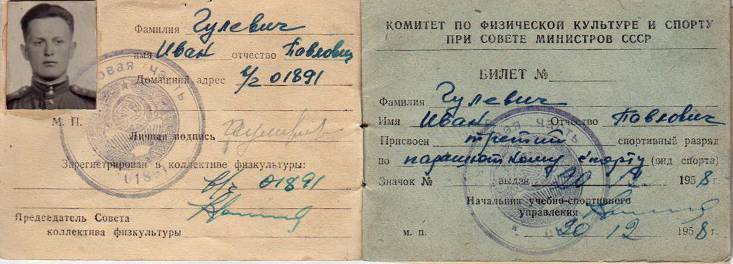 Фамилия Гулевич
имя Иван отчество Павлович
Домашний адрес в/ч 01891
М. П.
Личная подпись
Зарегистрирован в коллективе физкультуры:
в/ч 01891
Председатель Совета
коллектива физкультуры
КОМИТЕТ ПО ФИЗИЧЕСКОЙ КУЛЬТУРЕ И СПОРТУ
ПРИ СОВЕТЕ МИНИСТРОВ СССР
БИЛЕТ №
Фамилия Гулевич
Имя Иван Отчество Павлович
Присвоен третий спортивный разряд
по парашютному спорту (вид спорта)
Значок № выдан 20 12 1958 г.
Начальник учебно-спортивного
управления
м. п. 20 12 1958 г.